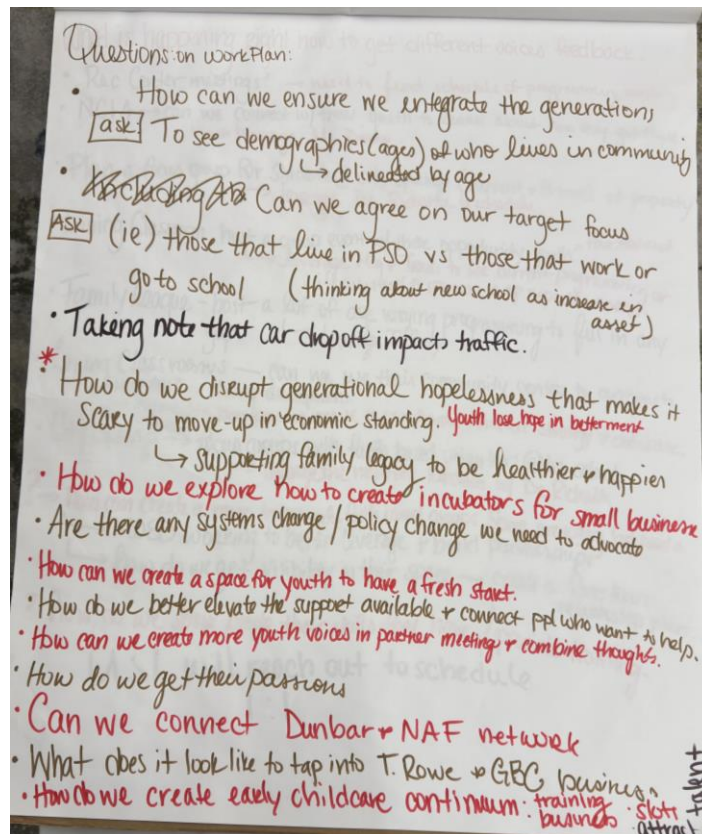 Questions: on workPlan:
• How can we ensure we integrate the generations
ask: To see demographics (ages) of who lives in community
↳ delineated by age
• Can we agree on our target focus
ASK (ie) those that live in PSO vs those that work or
go to school (thinking about new school as increase in
asset)
• Taking note that car drop off impacts traffic.
*
• How do we disrupt generational hopelessness that makes it
Scary to move-up in economic standing. Youth lose hope in betterment
↳ supporting family legacy to be healthier & happier
• How do we explore how to create incubators for small business
• Are there any systems change / policy change we need to advocate
• How can we create a space for youth to have a fresh start.
• How do we better elevate the support available & connect ppl who want to help.
• How can we create more youth voices in partner meeting & combine thoughts.
• How do we get their passions
• Can we connect Dunbar & NAF network
• What does it look like to tap into T. Rowe & GBC business
• How do we create early childcare continuum: training • slots
business • attract talent